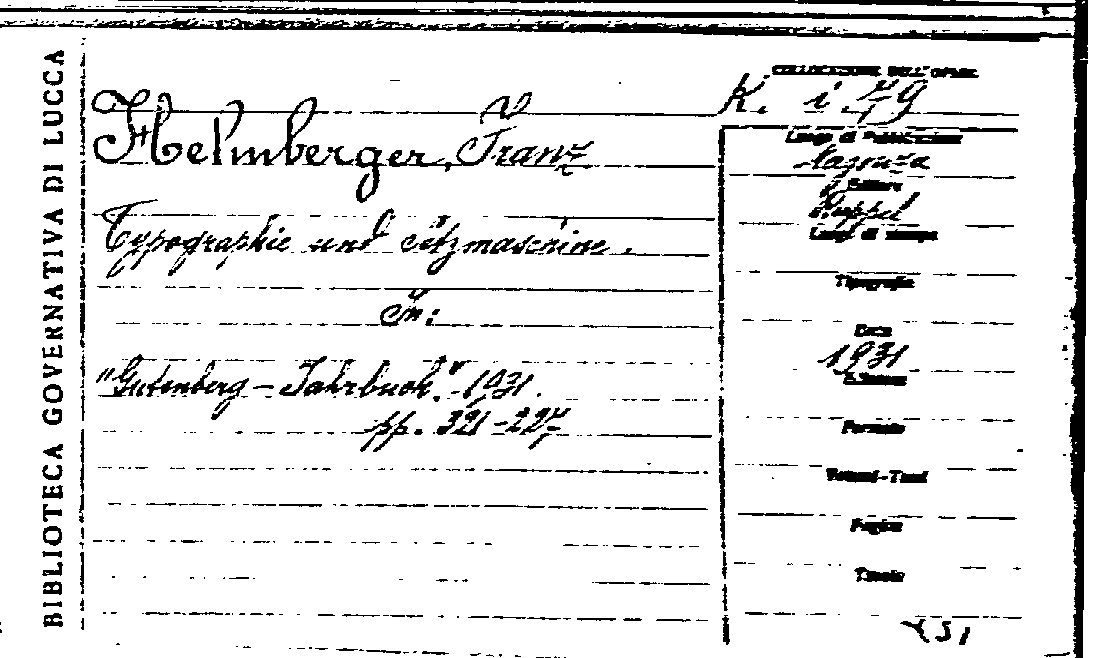 BIBLIOTECA GOVERNATIVA DI LUCCA
COLLOCAZIONE DELL'OPERA
K. i. 79
Helmberger, Franz
Luogo di Pubblicazione
Magonza
Editore
Ruppel
Typographie und Setzmaschine.
Luogo di stampa
Tipografia
In:
Data
1931
"Gutenberg - Jahrbuch." 1931.
pp. 321-227
Formato
Volumi-Tomi
Pagine
Tavole